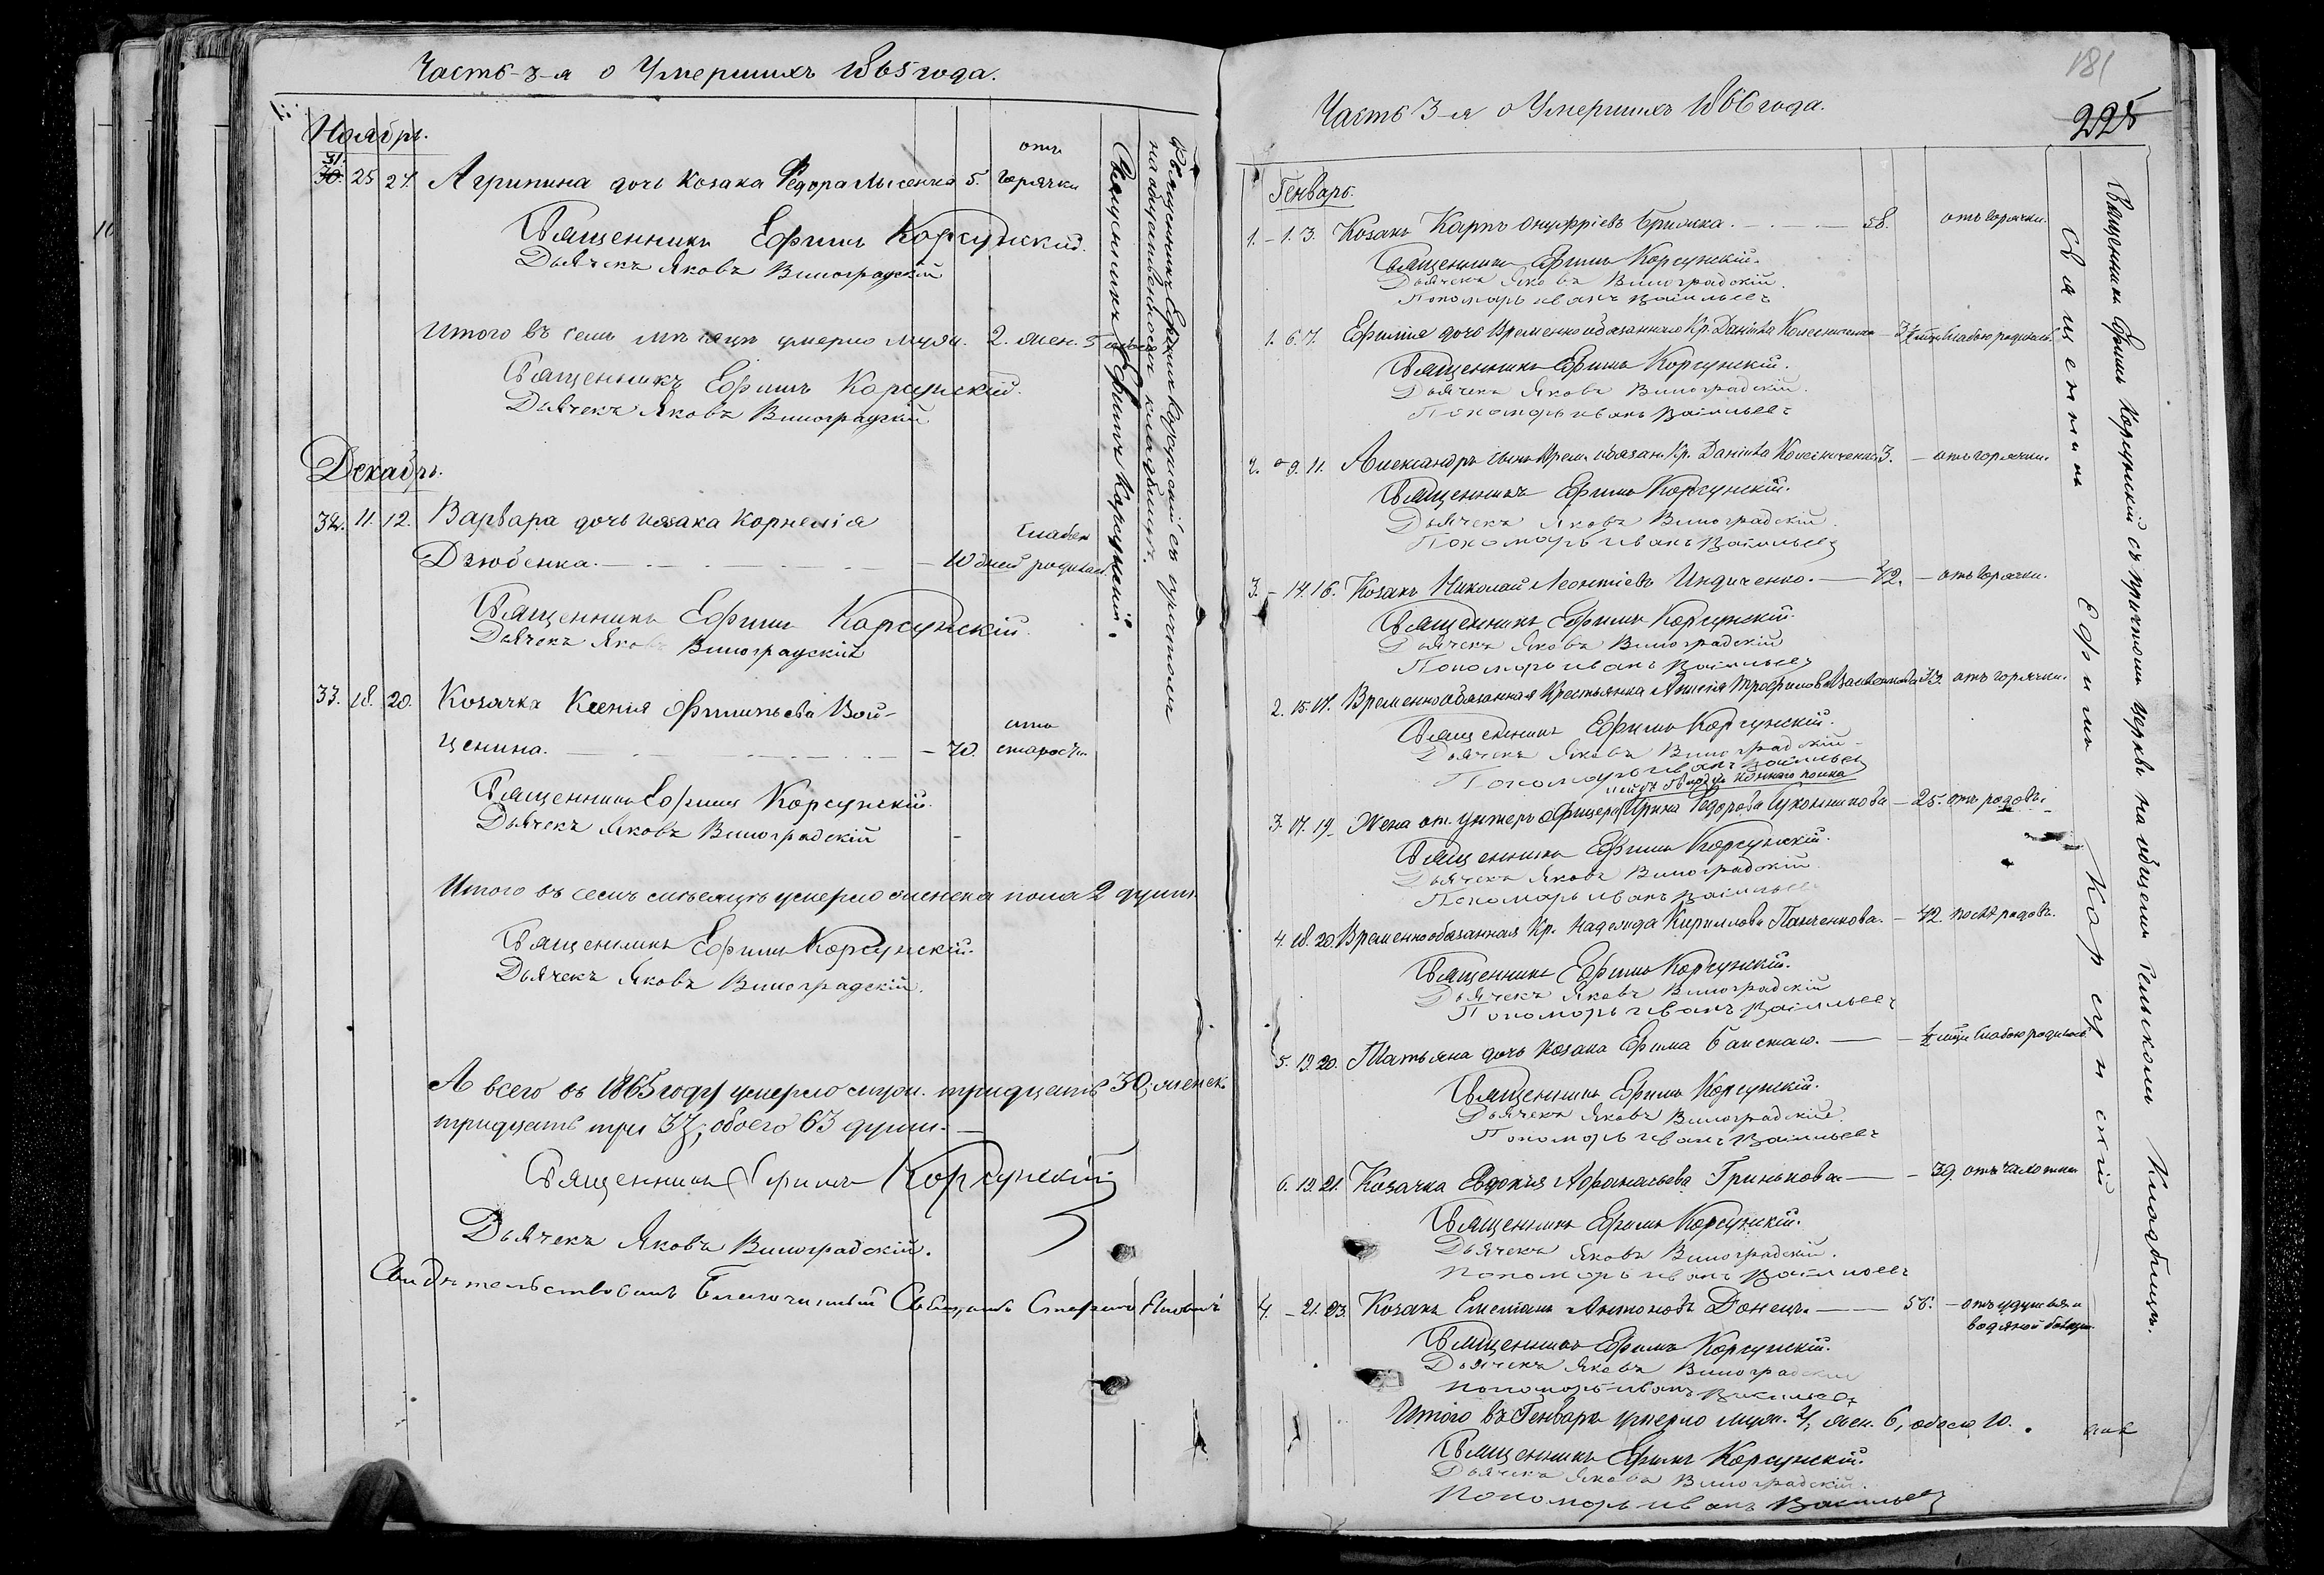 Часть 3-я о Умершихъ 1865 года.
Ноябрь.
31. 25 27. Агрипина дочь козака Федора Лысенка 5. отъ горячки
Священникъ Ефимъ Корсунский.
Дьячекъ Яковъ Виноградскій
Итого въ семъ месяце умерло муж. 2. жен. 5
Священникъ Ефимъ Корсунскій.
Дьячекъ Яковъ Виноградскій
Декабрь.
32. 11. 12. Варвара дочь козака Корнелія
Дзюбенка. — 10 дней слабою родилась.
Священникъ Ефимъ Корсунскій.
Дьячекъ Яковъ Виноградскій
33. 18. 20. Козачка Ксенія Филипьева Вой-
ценина. — 70. отъ старости
Священникъ Ефимъ Корсунскій.
Дьячекъ Яковъ Виноградскій
Итого въ семъ месяце умерло женска пола 2 души.
Священникъ Ефимъ Корсунскій.
Дьячекъ Яковъ Виноградскій.
А всего въ 1865 году умерло муж. тридцать 30, женск.
тридцать три 33, обоего 63 души.
Священникъ Ефимъ Корсунскій
Дьячекъ Яковъ Виноградскій.
Свидѣтельствовалъ Благочинный Священ.
Священникъ Ефимъ Корсунскій съ причтомъ
на общественномъ кладбищѣ.
Священникъ Ефимъ Корсунскій.
181
225
Часть 3-я о Умершихъ 1866 года.
Генварь.
1. - 1. 3. Козакъ Карпъ Онуфріевъ Брижка. — 58. отъ горячки.
Священникъ Ефимъ Корсунскій.
Дьячекъ Яковъ Виноградскій.
Пономарь Иванъ Васильевъ
1. 6. 7. Ефимія дочь временно обязаннаго Кр. Даніила Колесниченка — слабою родилась.
Священникъ Ефимъ Корсунскій.
Дьячекъ Яковъ Виноградскій.
Пономарь Иванъ Васильевъ
2. - 9. 11. Александръ сынъ Врем. обязан. Кр. Даніила Колесниченка 3. — отъ горячки.
Священникъ Ефимъ Корсунскій.
Дьячекъ Яковъ Виноградскій.
Пономарь Иванъ Васильевъ
3. - 14. 16. Козакъ Николай Леонтіевъ Индиченко. — 42. — отъ горячки.
Священникъ Ефимъ Корсунскій.
Дьячекъ Яковъ Виноградскій
Пономарь Иванъ Васильевъ
2. 15. 17. Временнообязанная Крестьянка Трофимова 33. отъ горячки.
Священникъ Ефимъ Корсунскій.
Дьячекъ Яковъ Виноградскій
Пономарь Иванъ Васильевъ
3. 17. 19. Жена от. Унтеръ офицера Ирина Федорова — 25. отъ родовъ.
Священникъ Ефимъ Корсунскій.
Дьячекъ Яковъ Виноградскій
Пономарь Иванъ Васильевъ
4. 18. 20. Временнообязанная Кр. Надежда Кириллова Панченкова. — 42. послѣ родовъ.
Священникъ Ефимъ Корсунскій.
Дьячекъ Яковъ Виноградскій
Пономарь Иванъ Васильевъ
5. 19. 20. Татьяна дочь козака Ефима — слабою родилась
Священникъ Ефимъ Корсунскій.
Дьячекъ Яковъ Виноградскій
Пономарь Иванъ Васильевъ
6. 19. 21. Козачка Евдокія Афанасьева Гринькова — 39. отъ чахотки
Священникъ Ефимъ Корсунскій.
Дьячекъ Яковъ Виноградскій.
Пономарь Иванъ Васильевъ
4. - 21. 23. Козакъ Емельянъ Антоновъ Донецъ — 56. — отъ удушья и
водяной болезни.
Священникъ Ефимъ Корсунскій.
Дьячекъ Яковъ Виноградскій
Пономарь Иванъ Васильевъ
Итого въ Генваре умерло муж. 4, жен. 6, обоего 10.
Священникъ Ефимъ Корсунскій.
Дьячекъ Яковъ Виноградскій.
Пономарь Иванъ Васильевъ
Священникъ Ефимъ Корсунскій
Священникъ Ефимъ Корсунскій съ причтомъ церкви на общемъ сельскомъ кладбищѣ.